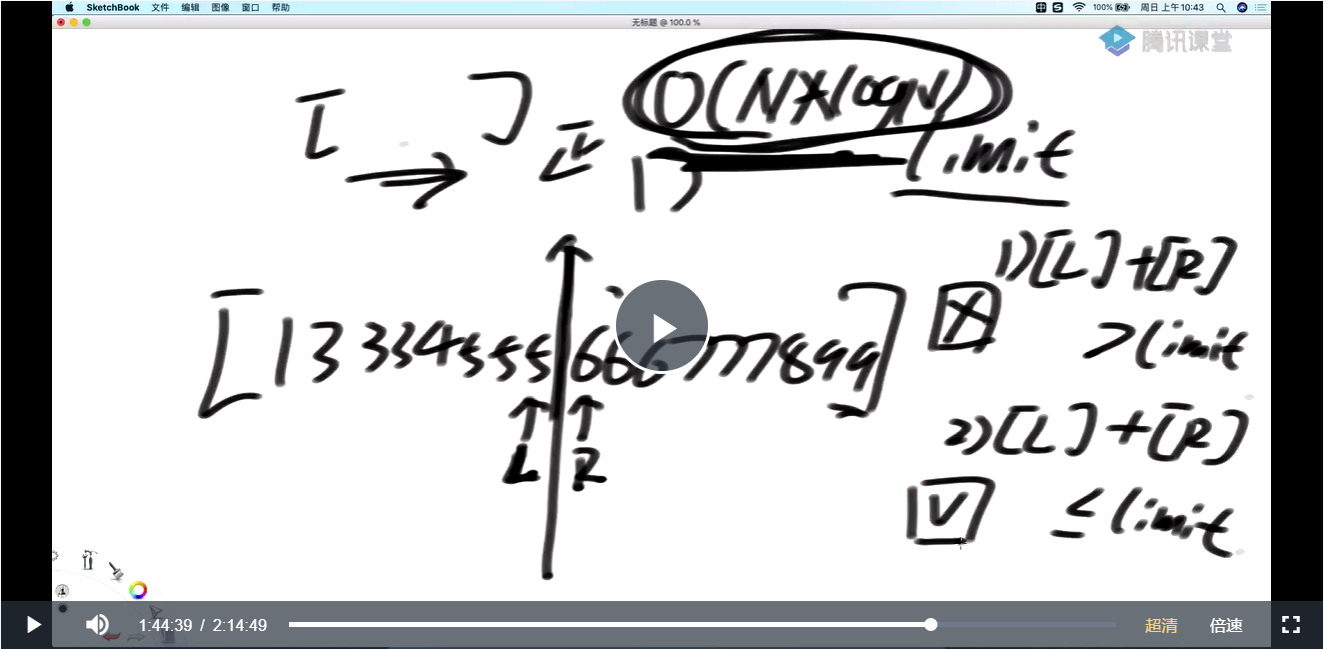 SketchBook 文件 编辑 图像 窗口 帮助 100% 周日 上午10:43
无标题 @ 100.0 %
腾讯课堂
[ ] O(N*logN)
1) limit
[1 3 3 3 4 5 5 5 6 6 6 7 7 7 8 9 9]
L R
1) [L]+[R]
> limit
2) [L]+[R]
≤ limit
1:44:39 / 2:14:49 超清 倍速